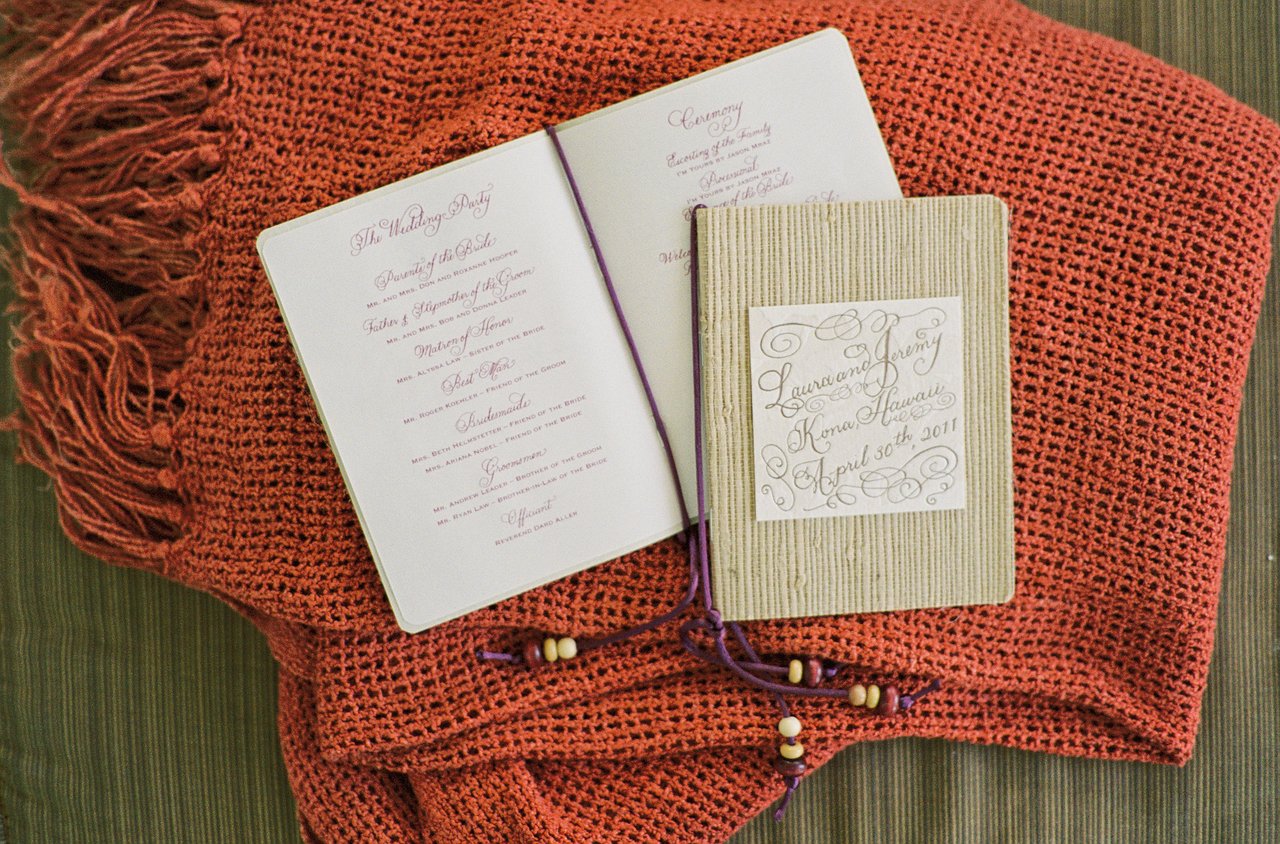 The Wedding Party
Parents of the Bride
Mr. and Mrs. Don and Roxanne Hooper
Father & Stepmother of the Groom
Mr. and Mrs. Bob and Donna Leader
Matron of Honor
Mrs. Alyssa Law – Sister of the Bride
Best Man
Mr. Roger Koehler – Friend of the Groom
Bridesmaids
Mrs. Beth Helmstetter – Friend of the Bride
Mrs. Ariana Nobel – Friend of the Bride
Groomsmen
Mr. Andrew Leader – Brother of the Groom
Mr. Ryan Law – Brother-in-Law of the Bride
Officiant
Reverend Dard Aller
Ceremony
Escorting of the Family
I'm Yours by Jason Mraz
Processional
I'm Yours by Jason Mraz
of the Bride
Laura and Jeremy
Kona, Hawaii
April 30th, 2011